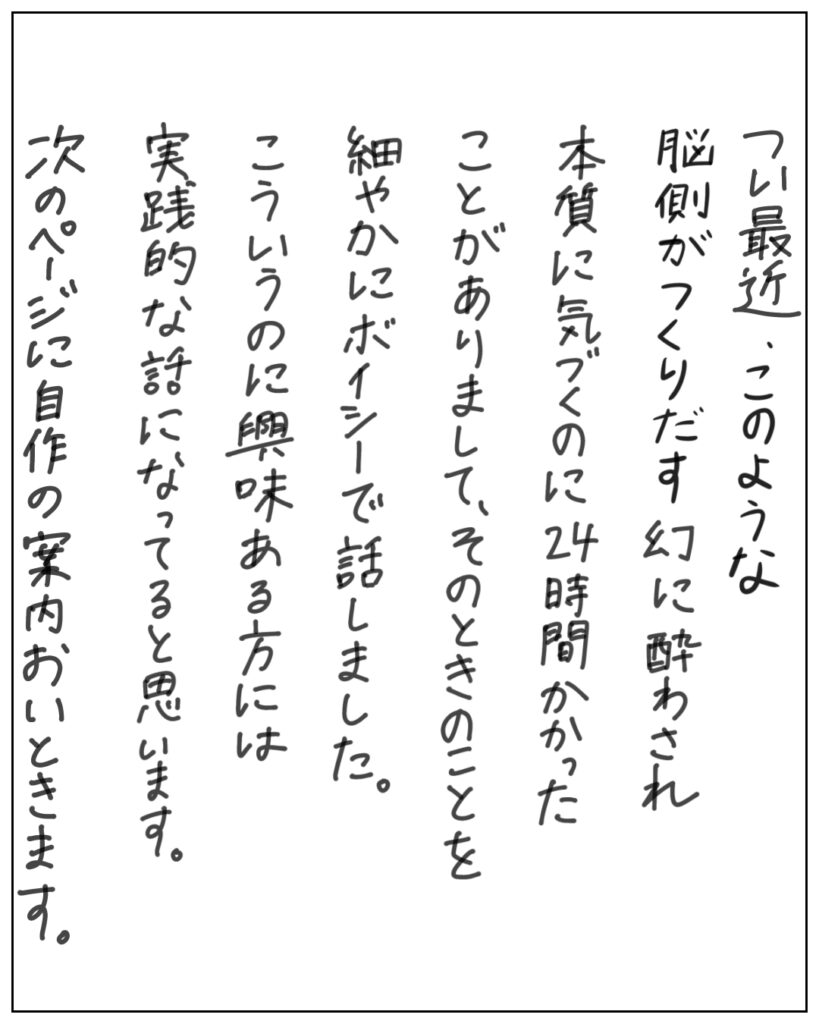 つい最近、このような
脳側がつくりだす幻に酔わされ
本質に気づくのに24時間かかった
ことがありまして、そのときのことを
細やかにボイシーで話しました。
こういうのに興味ある方には
実践的な話になってると思います。
次のページに自作の案内おいときます。